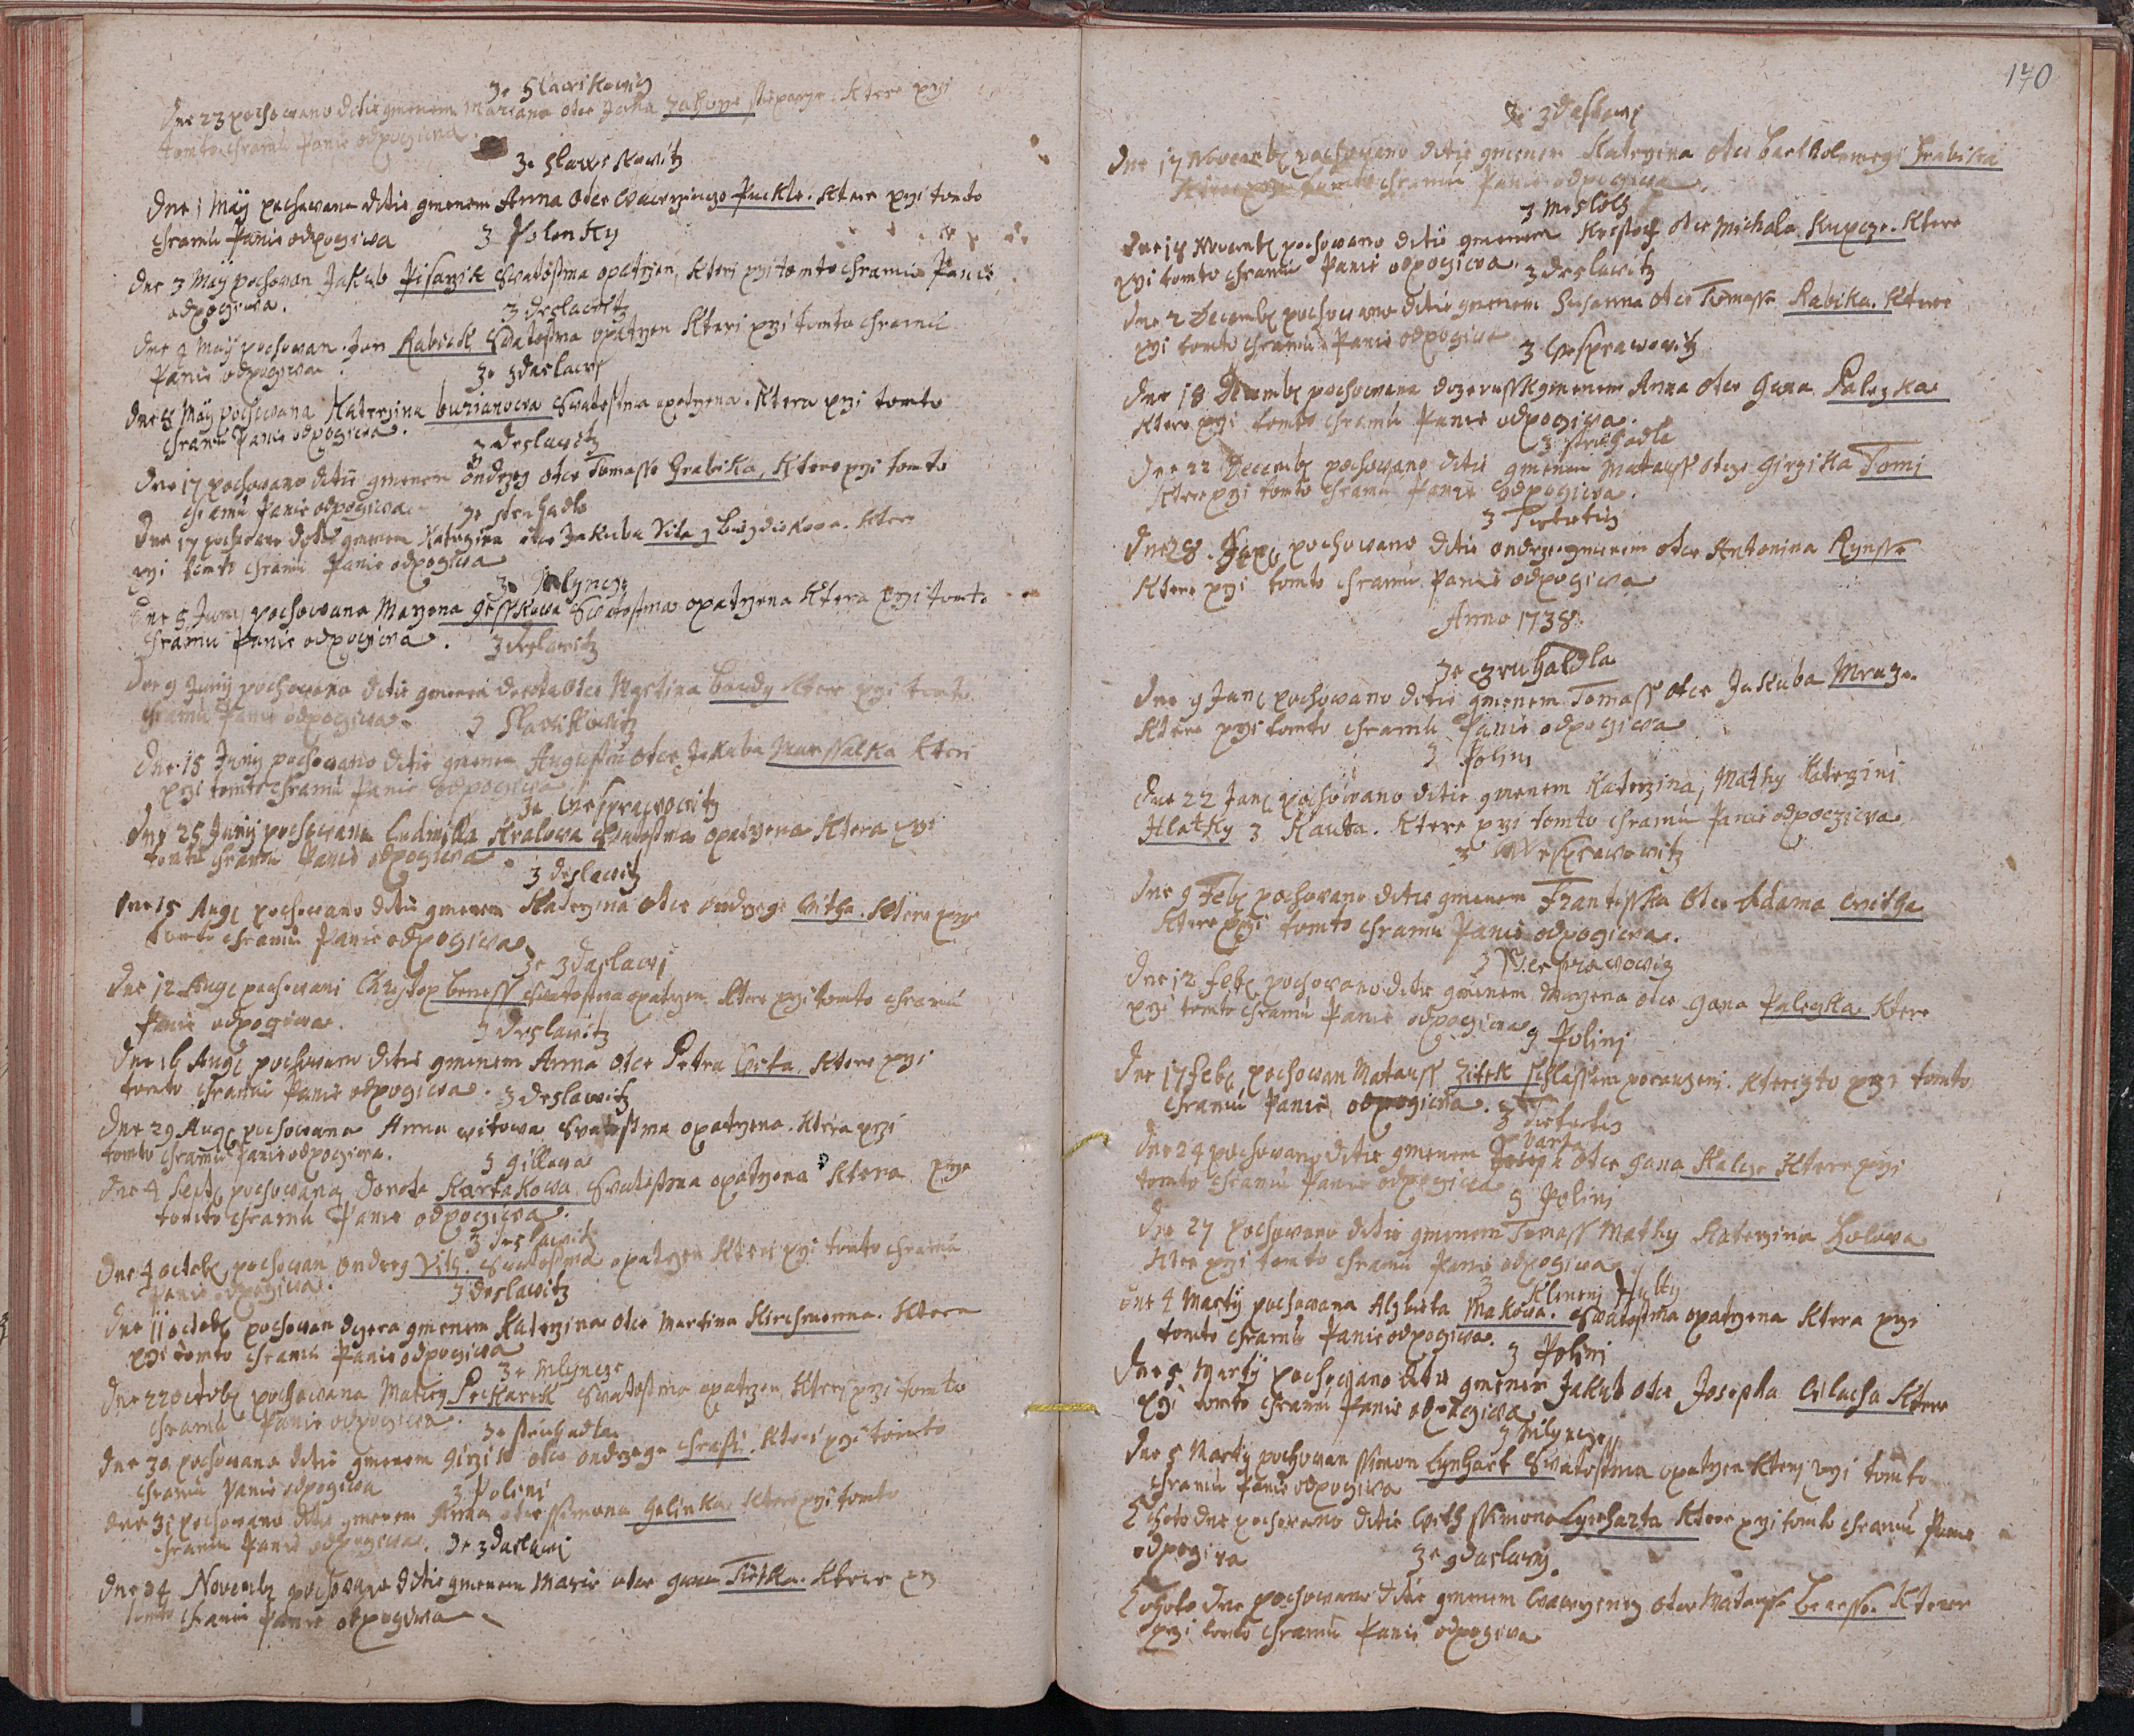 Ze Slawikowitz
Dne 23 pochowano ditie gmenem Mariana otce Jana ktere przi
tomto chramu Panie odpogiwa.
Ze Slawikowitz
Dne 1 Maÿ pochowano ditie gmenem Anna otce Wawrzince Puckle. ktere przi tomto
chramu Panie odpogiwa
Z Polenky
Dne 3 Maÿ pochowan Jakub Pisarzik Swatostma opatrzen, kteri przi tomto chramu Panie
odpogiwa.
Z deslawitz
Dne 4 Maÿ pochowan Jan Rabick Swatostma opatrzen kteri przi tomto chramu
Panie odpogiwa.
Ze zdaslawi
Dne 8 Maÿ pochowana Katerzina burianowa Swatostma opatrzena. ktera przi tomto
chramu Panie odpogiwa.
Z deslawitz
Dne 17 pochowano ditie gmenem ondrzeg otce Tomasse Hrabika, ktere przi tomto
chramu Panie odpogiwa.
Ze struhadla
Dne 17 pochowano ditie gmenem Katerzina otce Jakuba Vila ktere
przi tomto chramu Panie odpogiwa
Ze Mlyncze
Dne 5 Juny pochowana Marzena Swatostma opatrzena ktera przi tomto
chramu Panie odpogiwa.
Z deslawitz
Dne 9 Juny pochowano ditie gmenem dorota otce Martina baudy ktere przi tomto
chramu Panie odpogiwa.
Z Slawikowitz
Dne 15 Juny pochowano ditie gmenem Augustin otce Jakuba Marssalka kteri
przi tomto chramu Panie odpogiwa
Ze Wesprawowitz
Dne 25 Juny pochowana Ludmilla Kralowa Swatostma opatrzena ktera przi
tomto chramu Panie odpogiwa.
Z deslawitz
Dne 15 Aug pochowano ditie gmenem Katerzina otce ondrzege Witha. ktere przi
tomto chramu Panie odpogiwa
Ze zdaslawi
Dne 12 Aug pochowani Christop beness Swatostma opatrzen ktere przi tomto chramu
Panie odpogiwa.
Z deslawitz
Dne 16 Aug pochowano ditie gmenem Anna otce Petra Wita ktere przi
tomto chramu Panie odpogiwa.
Z deslawitz
Dne 29 Aug pochowana Anna witowa Swatostma opatrzena. ktera przi
tomto chramu Panie odpogiwa.
Z gillowa
Dne 4 Sept pochowana dorota Kortakowa Swatostma opatrzena ktera przi
tomto chramu Panie odpogiwa.
Z deslawitz
Dne 4 octob pochowan ondrzeg Vith. Swatostma opatrzen kteri przi tomto chramu
Panie odpogiwa.
Z deslawitz
Dne 11 octob pochowan dczera gmenem Katerzina otce Martina Kirchmonna. ktera
przi tomto chramu Panie odpogiwa
Ze Mlyncze
Dne 22 octob pochowana Mateg Peckarek Swatostma opatrzen, kteri przi tomto
chramu Panie odpogiwa.
Ze struhadla
Dne 30 pochowano ditie gmenem Girzik otce ondrzege Chrasti. kteri przi tomto
chramu Panie odpogiwa
Z Poleni
Dne 31 pochowano ditie gmenem Anna otce ssimona Holinka ktere przi tomto
chramu Panie odpogiwa.
Ze zdaslawi
Dne 24 Novemb pochowano ditie gmenem Marie otce gana Tietka. ktere przi
tomto chramu Panie odpogiwa
170
Ze zdaslawi
Dne 17 Novemb pochowano ditie gmenem Katerzina otce bartholomegi Hrabika
ktere przi tomto chramu Panie odpogiwa.
Z
Dne 18 Novemb pochowano ditie gmenem Kristof otce Michala Kupcze. ktere
przi tomto chramu Panie odpogiwa.
Z deslawitz
Dne 2 Decemb pochowano ditie gmenem Susanna otce Tomasse Rabika. ktere
przi tomto chramu Panie odpogiwa
Z Wesprawowitz
Dne 18 Decemb pochowana gmenem Anna otce Gana Paleczka
ktere przi tomto chramu Panie odpogiwa.
Z struhadla
Dne 22 Decemb pochowano ditie gmenem Matauss otcze girzika Tomi
ktere przi tomto chramu Panie odpogiwa.
Z Tietietitz
Dne 28 pochowano ditie ondrzeg gmenem otce Antonina Rynsse
ktere przi tomto chramu Panie odpogiwa
Anno 1738.
Ze Struhaldla
Dne 9 Jan pochowano ditie gmenem Tomass otce Jakuba Mraze.
ktere przi tomto chramu Panie odpogiwa
Z Poleni
Dne 22 Jan pochowano ditie gmenem Katerzina, Mathy Katerzini
Hlatky z Kauta. ktere przi tomto chramu Panie odpoczicwa
Z Wesprawowitz
Dne 9 Feb pochowano ditie gmenem Frantisska otce Adama Witha
ktere przi tomto chramu Panie odpogiwa.
Z Wesprawowitz
Dne 12 feb pochowano ditie gmenem Marzena otce gana Paleczka. ktere
przi tomto chramu Panie odpogiwa
Z Polini
Dne 17 feb pochowan Matauss Zitek porauzeni. kterizto przi tomto
chramu Panie odpogiwa.
Z Tietietitz
Dne 24 pochowano ditie gmenem barta otce gana Kalcze ktere przi
tomto chramu Panie odpogiwa
Z Polini
Dne 27 pochowano ditie gmenem Tomass Mathy Katerzina Holowa
ktere przi tomto chramu Panie odpogiwa
Z Klineni
Dne 4 Martÿ pochowana Alzbieta Makowa. Swatostma opatrzena ktera przi
tomto chramu Panie odpogiwa.
Z Polini
Dne 5 Martÿ pochowano ditie gmenem Jakub otce Josepha Wlacha ktere
przi tomto chramu Panie odpogiwa
Z Mlyncze
Dne 5 Martÿ pochowan ssimon Lynhart Swatostma opatrzen kteri przi tomto
chramu Panie odpogiwa
Tehoto dne pochowano ditie With ssimona Lynharta ktere przi tomto chramu Panie
odpogiwa
Ze zdaslawi
Tohoto dne pochowano ditie gmenem Wawrzinecz otce Matausse Benesse. ktere
przi tomto chramu Panie odpogiwa